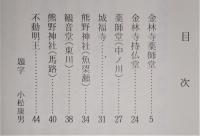 目次
金林寺薬師堂 5
金林寺持仏堂 24
薬師堂（中ノ川） 27
城福寺 31
熊野神社（魚梁瀬） 34
観音堂（東川） 38
熊野神社（馬路） 40
不動明王 44
題字 小松康男